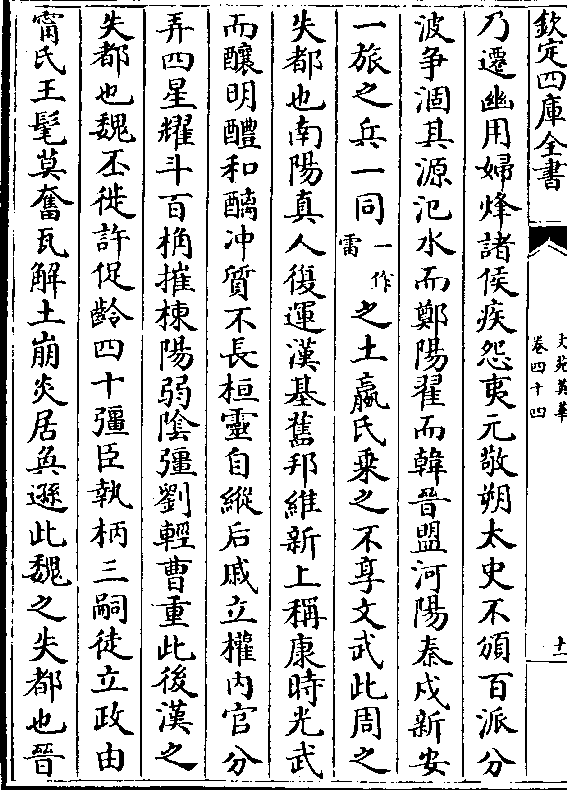 欽定四庫全書
文苑英華
卷四十四
十一
乃遷幽用婦烽諸侯疾怨夷元敬朔太史不頒百派分
波争涸其源汜水而鄭陽翟而韓晉盟河陽秦戍新安
一旅之兵一同一作雷之土嬴氏乘之不享文武此周之
失都也南陽真人復運漢基舊邦維新上稱康時光武
而釀明醴和醨冲質不長桓靈自縱后戚立權内官分
弄四星耀斗百桷摧棟陽弱陰彊劉輕曹重此後漢之
失都也魏丕徙許促齡四十彊臣執柄三嗣徒立政由
甯氏王髦莫奮瓦解土崩炎居奐遜此魏之失都也晉